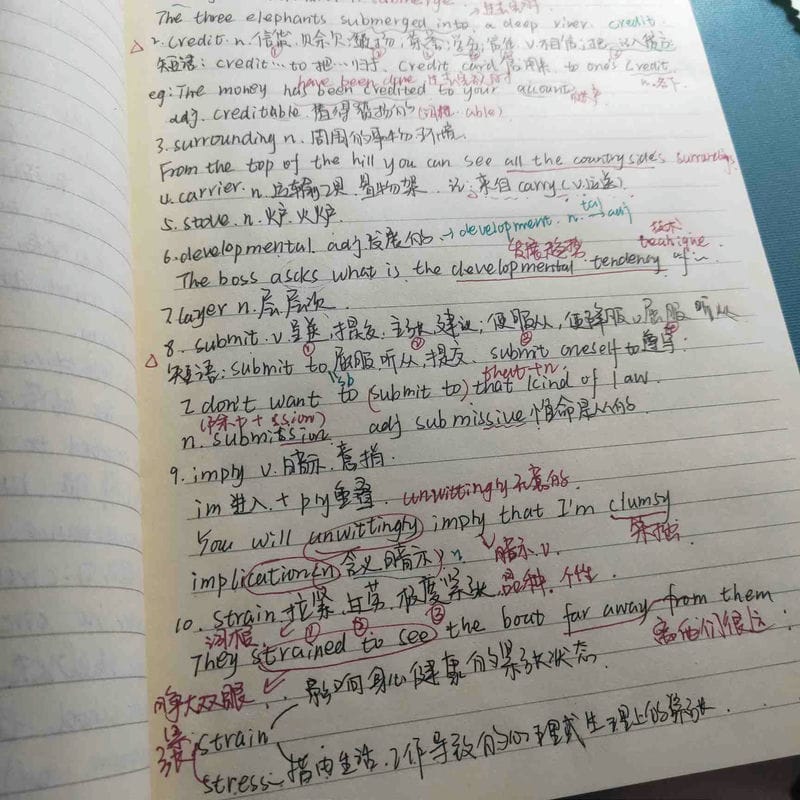 The three elephants submerged into a deep river. credit
2. credit. n. 信贷, 贷余欠 赞扬, 荣誉, 学分, 
短语: credit… to 把…归于, credit card 信用卡, to one's credit
have been done
eg: The money has been credited to your account. n.名下
adj. creditable. 值得赞扬的 (able)
3. surrounding n. 周围的事物 环境.
From the top of the hill you can see all the countryside's surroundings
4. carrier. n. 运输工具. 置物架. 记: 来自 carry (v.运送).
5. stove. n. 炉. 火炉.
6. developmental. adj 发展的 → development. n. tal → adj
发展趋势 技术 teahique.
The boss ascks what is the developmental tendency of ~
7. layer n. 层 层次
8. submit. v. 呈递, 提交, 主张, 建议; 使服从, 使降服 v. 屈服 听从
短语: submit to ① 屈服, 听从, ② 提交. submit oneself to ③ 遵守.
I don't want to (submit to) that kind of law.
n. submission adj submissive 惟命是从的
9. imply v. 暗示. 意指.
im 进入 + ply 重叠. unwittingly 不意的.
You will unwittingly imply that I'm clumsy
implication (n 含义, 暗示) n 暗示 v. 笨拙
10. strain. 拉紧, 与劳. 极度紧张. 品种. 个性.
词根 ① ② ③
They strained to see the boat far away from them
离他们很远.
睁大双眼 影响身心健康的紧张状态.
紧张
strain
stress 指由生活. 工作导致的心理或生理上的紧张.